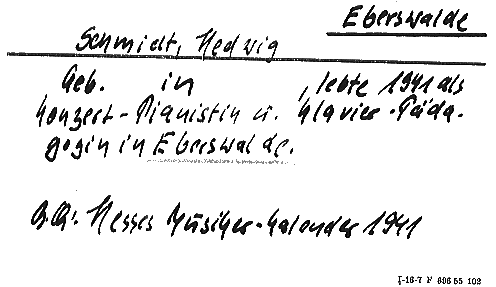 Eberswalde
Schmidt, Hedwig
Geb. in , lebte 1941 als
Konzert-Pianistin u. Klavier-Päda-
gogin in Eberswalde.
Hesses Musiker-Kalender 1941
I-16-7 F 696 55 102